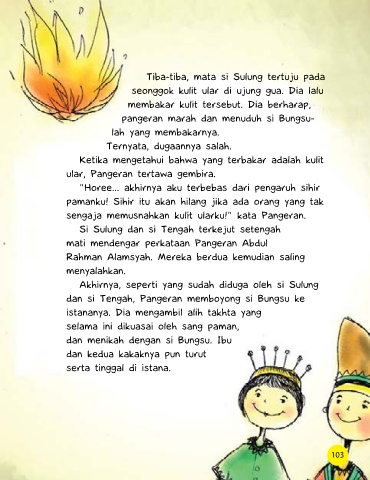 Tiba-tiba, mata si Sulung tertuju pada
seonggok kulit ular di ujung gua. Dia lalu
membakar kulit tersebut. Dia berharap,
pangeran marah dan menuduh si Bungsu-
lah yang membakarnya.
Ternyata, dugaannya salah.
Ketika mengetahui bahwa yang terbakar adalah kulit
ular, Pangeran tertawa gembira.
"Horee... akhirnya aku terbebas dari pengaruh sihir
pamanku! Sihir itu akan hilang jika ada orang yang tak
sengaja memusnahkan kulit ularku!" kata Pangeran.
Si Sulung dan si Tengah terkejut setengah
mati mendengar perkataan Pangeran Abdul
Rahman Alamsyah. Mereka berdua kemudian saling
menyalahkan.
Akhirnya, seperti yang sudah diduga oleh si Sulung
dan si Tengah, Pangeran memboyong si Bungsu ke
istananya. Dia mengambil alih takhta yang
selama ini dikuasai oleh sang paman,
dan menikah dengan si Bungsu. Ibu
dan kedua kakaknya pun turut
serta tinggal di istana.
103